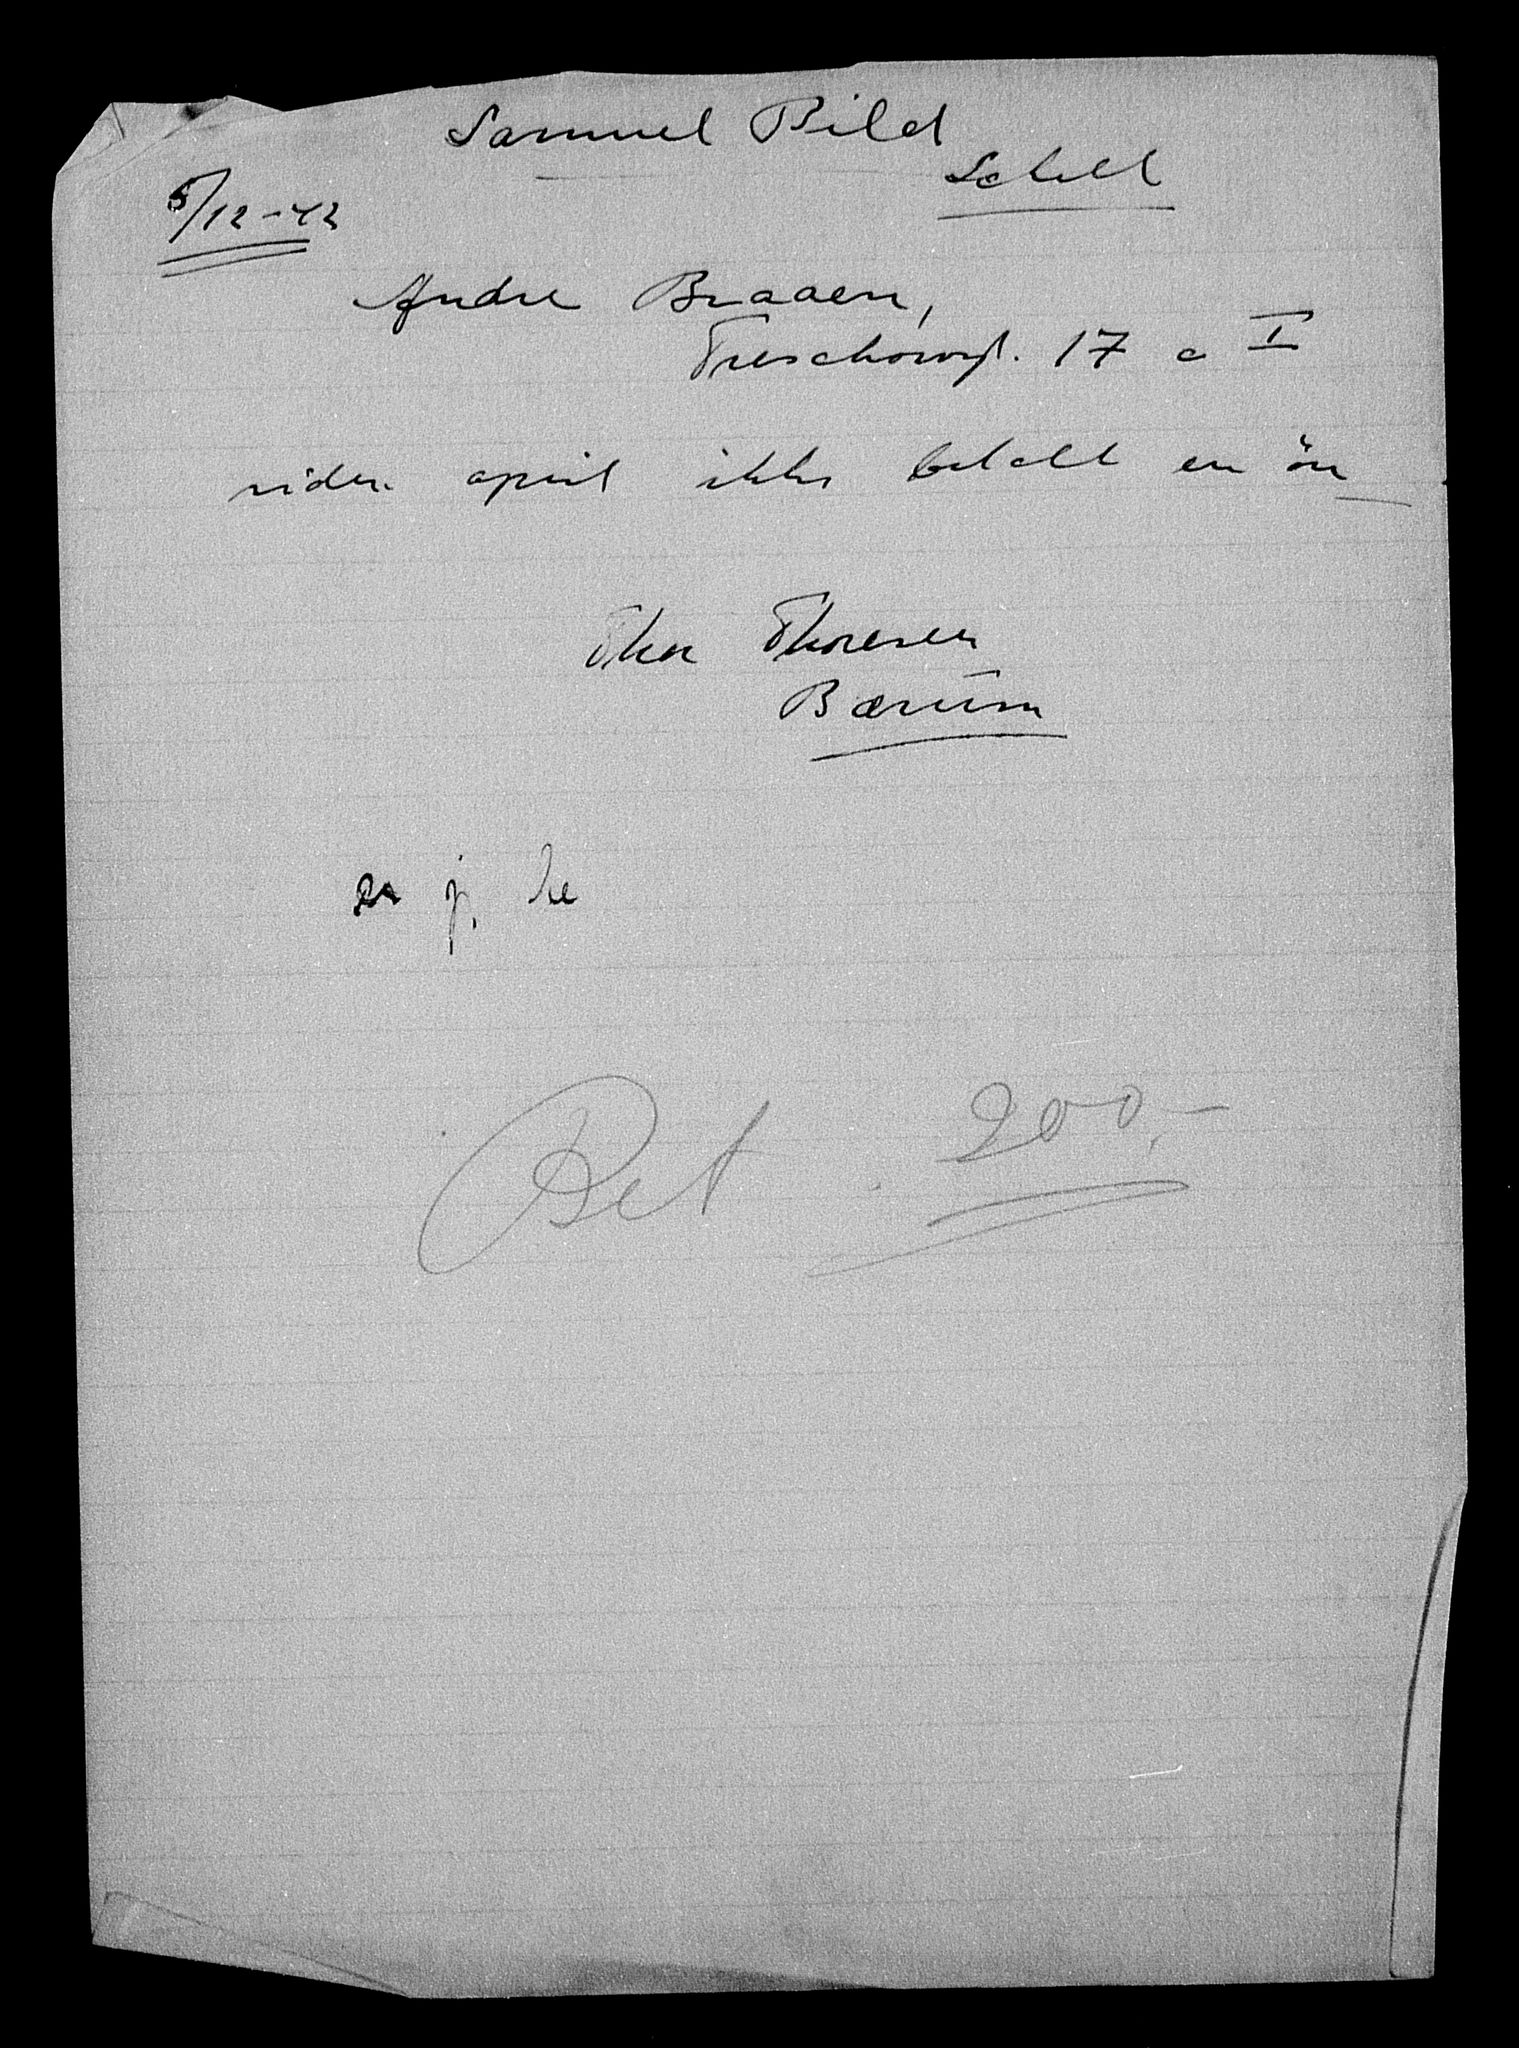 Samuel Bild
5/12-42
Andre Braaen,
Treschowsgt. 17 c I
siden april ikke betalt en öre
Thor Thoresen
Bærum
Bet. 200,-